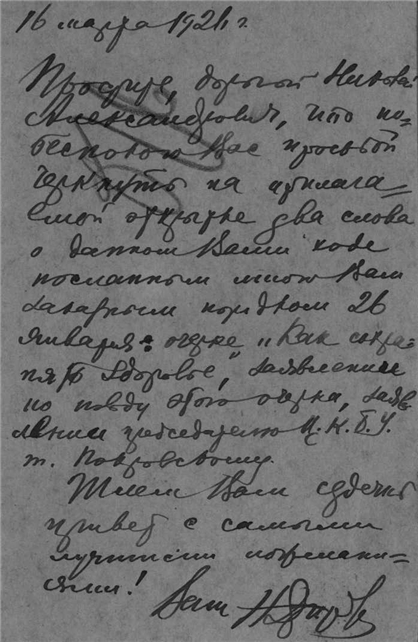 16 марта 1926 г.
Простите, дорогой Николай
Александрович, что по-
беспокою Вас просьбой
черкнуть на прилага-
емой открытке два слова
о данном Вами ходе
посланным мною Вам
заказным порядком 26
января: очерке „Как сохра-
нять здоровье", заявлении
по поводу этого очерка, заяв-
лении председателю Ц.К.Б.У.
т. Покровскому.
Шлем Вам сердечный
привет с самыми
лучшими пожелани-
ями!
Ваш